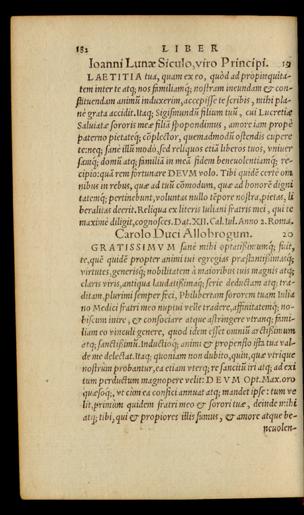 182 LIBER
Ioanni Lunæ Siculo, viro Principi. 19
LAETITIA tua, quam ex eo, quòd ad propinquita-
tem inter te atq; nos familiamq; nostram ineundam & con-
stituendam animũ induxerim, accepisse te scribis, mihi pla-
nè grata accidit. Itaq; Sigismundũ filium tuũ, cui Lucretiæ
Saluiatæ sororis meæ filiã spopondimus, amore iam propè
paterno pietateq; cõplector, quemadmodũ ostendis cupere
te: neq; sanè illũ modò, sed reliquos etiã liberos tuos, vniuer
samq; domũ atq; familiã in meã fidem beneuolentiamq; re-
cipio: quã rem fortunare DEVM volo. Tibi quidẽ certè om
nibus in rebus, quæ ad tuũ cõmodum, quæ ad honorẽ digni
tatemq; pertinebunt, voluntas nullo tẽpore nostra, pietas, li
beralitas deerit. Reliqua ex literis Iuliani fratris mei, qui te
maximè diligit, cognosces. Dat. XII. Cal. Iul. Anno 2. Roma.
Carolo Duci Allobrogum. 20
GRATISSIMVM sanè mihi optatissimumq; fuit,
te, quẽ quidẽ propter animi tui egregias præstantissimasq;
virtutes, generisq; nobilitatem à maioribus tuis magnis atq;
claris viris, antiqua laudatissimaq; serie deductam atq; tra-
ditam, plurimi semper feci, Philibertam sororem tuam Iulia
no Medici fratri meo nuptui velle tradere, affinitatemq; no-
biscum inire, & consociare atque astringere vtranq; fami-
liam eo vinculi genere, quod idem esset omniũ arctissimum
atq; sanctissimũ. Inductioq; animi & propensio ista tua val-
de me delectat. Itaq; quoniam non dubito, quin, quæ vtrique
nostrûm probantur, ea etiam vterq; re sancitũ iri atq; ad exi
tum perductum magnopere velit: DEVM Opt. Max. oro
quæsoq;, vt cùm ea confici annuat atq; mandet ipse: tum ve
lit, primùm quidem fratri meo & sorori tuæ, deinde mihi
atq; tibi, qui & propiores illis sumus, & amore atque be-
neuolen-